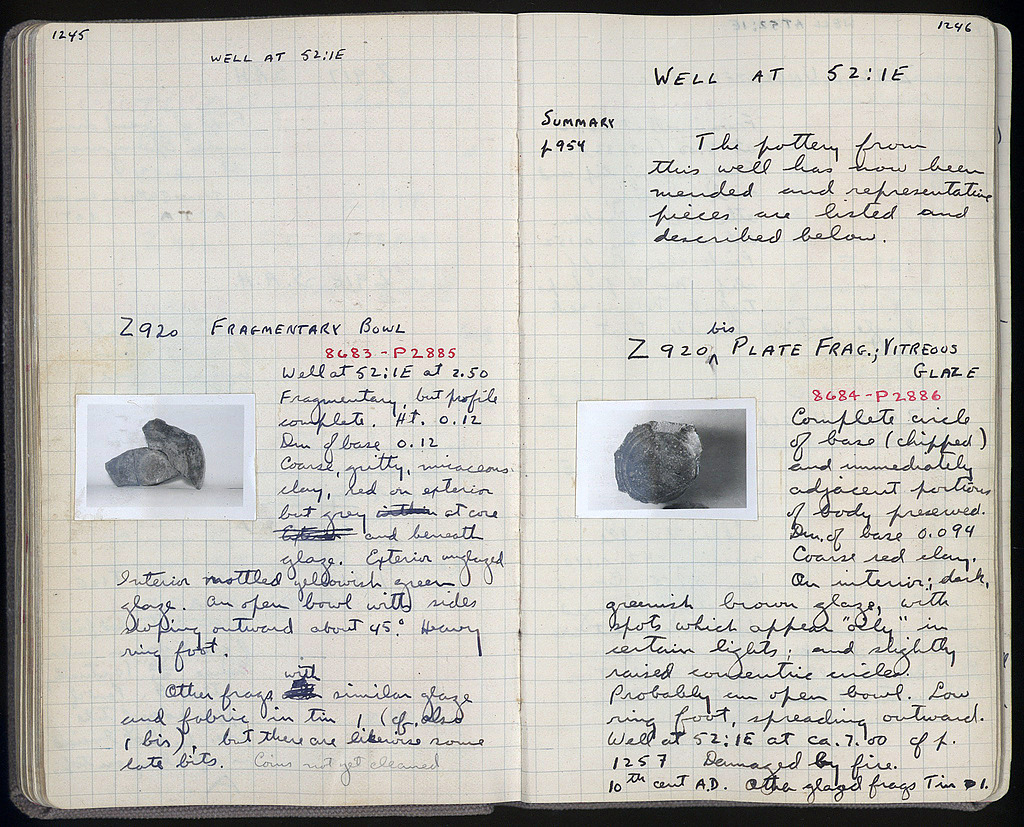 1245
WELL AT 52:1E
Z920 FRAGMENTARY BOWL
8683-P2885
Well at 52:1E at 2.50
Fragmentary, but profile
complete. Ht. 0.12
Dm of base 0.12
Coarse, gritty, micaceous
clay, red on exterior
but grey at core
and beneath
glaze. Exterior unglazed
Interior mottled yellowish green
glaze. An open bowl with sides
sloping outward about 45°. Heavy
ring foot.
Other frags with similar glaze
and fabric in tin 1, (cf. also
1 bis), but there are likewise some
late bits. Coins not yet cleaned
1246
WELL AT 52:1E
SUMMARY
p954
The pottery from
this well has now been
mended and representative
pieces are listed and
described below.
Z 920 bis PLATE FRAG.; VITREOUS
GLAZE
8684-P2886
Complete circle
of base (chipped)
and immediately
adjacent portions
of body preserved.
Dm. of base 0.094
Coarse red clay.
On interior; dark,
greenish brown glaze, with
spots which appear "oily" in
certain lights; and slightly
raised concentric circles.
Probably an open bowl. Low
ring foot, spreading outward.
Well at 52:1E at ca. 7.00 cf p.
1257 Damaged by fire.
10th cent A.D. Other glazed frags Tin 1.